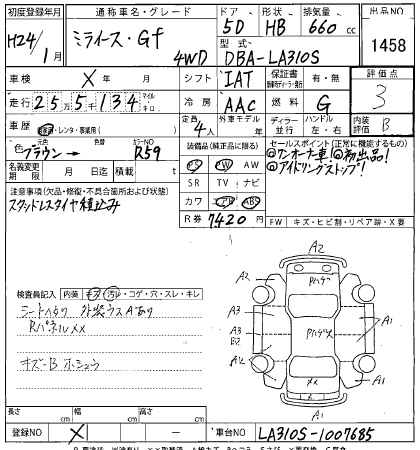 初度登録年月 通称車名・グレード ドア 形状 排気量 出品NO
H24/1月 ミライース・Gf 4WD 5D HB 660cc 1458
型式 DBA-LA310S
車検 X 年 月 シフト IAT 保証書 有・無 評価点 3
走行 255,134 マイル キロ 冷房 AAC 燃料 G 内装評価 B
車歴 ・レンタ・事業用( ) 定員 4人 外車モデル 年 ディーラー 並行 ハンドル 左・右
色 元色 ブラウン→ 色替 カラーNO R59 装備品(純正品に限る) セールスポイント(正常に機能するもの)
PS PW AW ◎ワンオーナー車!◎初出品!
名義変更期限 月 日迄 積載 t SR TV ナビ ◎アイドリングストップ!
注意事項(欠品・修復・不具合箇所および状態) カワ エアB ABS
スタッドレスタイヤ積込み R券 7420円 FW キズ・ヒビ割・リペア跡・X要
検査員記入 内装 キズ・汚レ・コゲ・穴・スレ・キレ
シートヨゴレ 外装ウスAあり
RパネルXX
キズーB ホシュウ
A2
A2 A1
A3
A3 B2 A1
A1
XX
A1
長さ cm 幅 cm 高さ cm
登録NO X ー 車台NO LA310S-1007685